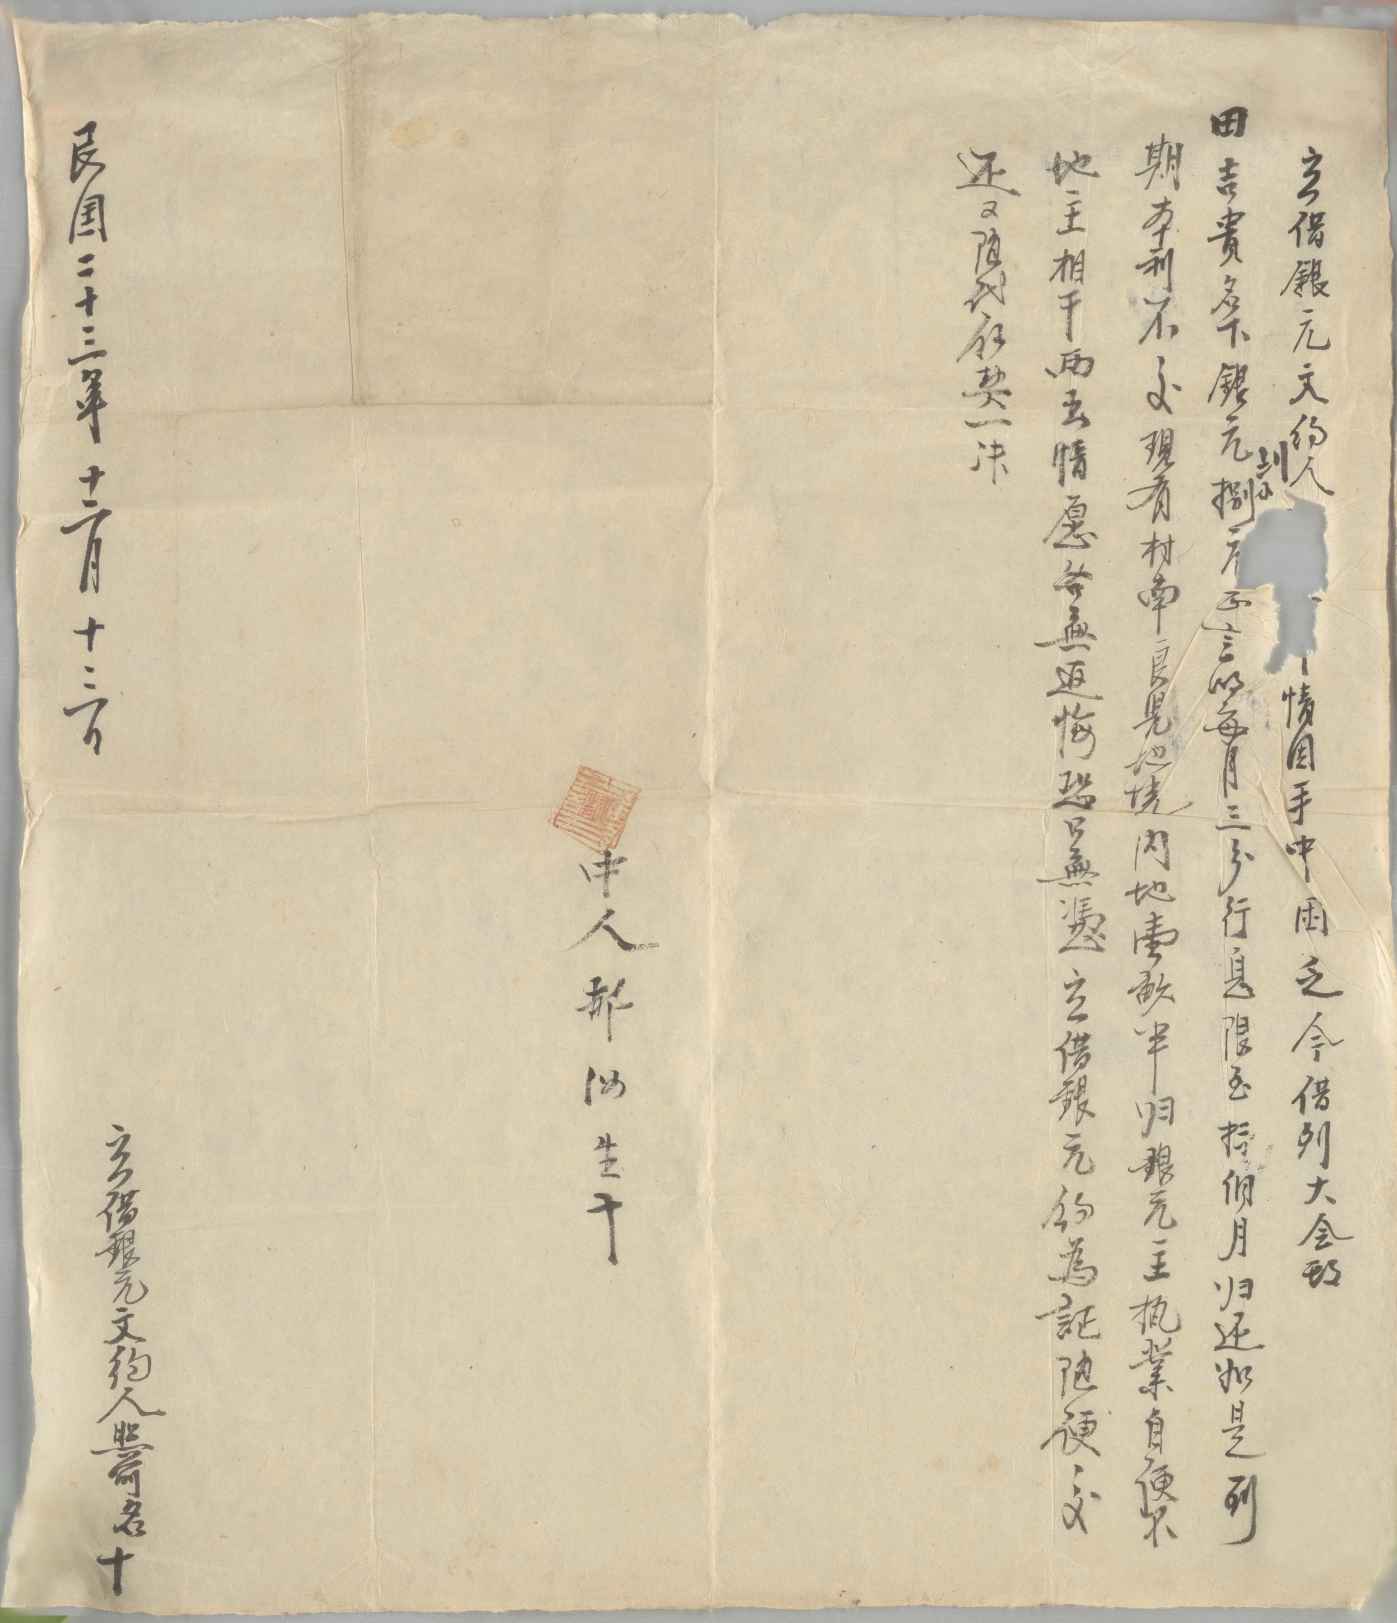 立借銀元文約人 情因手中困乏今借到大会
田吉貴名下銀元捌元正言明每月三分行息限至拾個月归还如是到
期本利不交現有村南良兒地境内地壹畝半归銀元主执業自便不
地主相干兩出情愿各無返悔恐口無憑立借銀元約為証随便交
还又随代紅契一张
中人 郝 生十
民国二十三年十二月十二日
立借銀元文約人照前名十